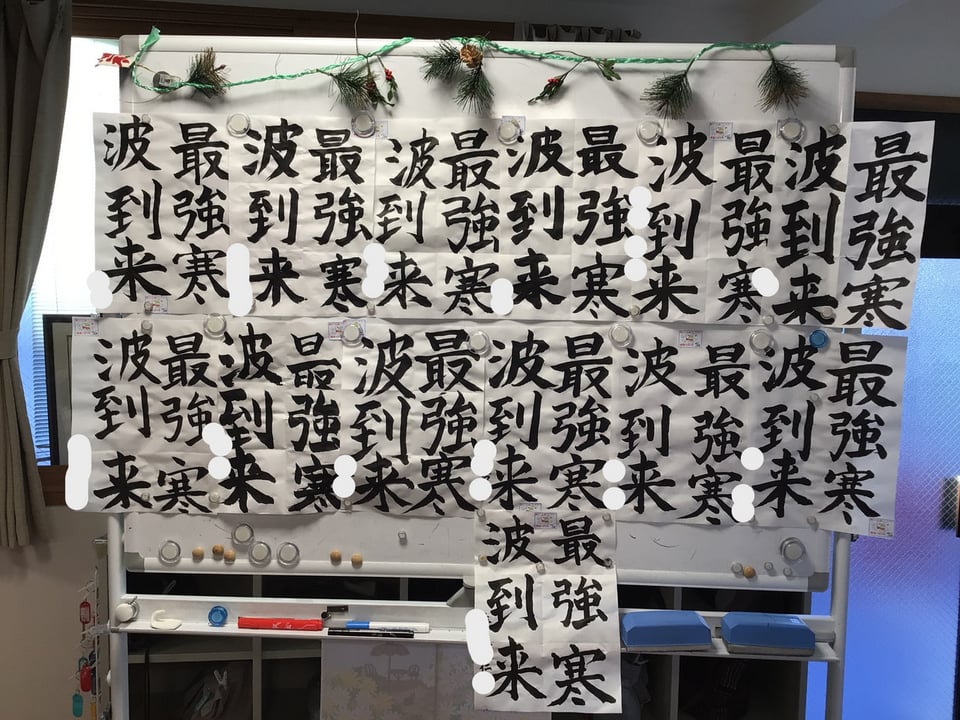 最強寒
波到来
最強寒
波到来
最強寒
波到来
最強寒
波到来
最強寒
波到来
最強寒
波到来
最強寒
波到来
最強寒
波到来
最強寒
波到来
最強寒
波到来
最強寒
波到来
最強寒
波到来
最強寒
波到来